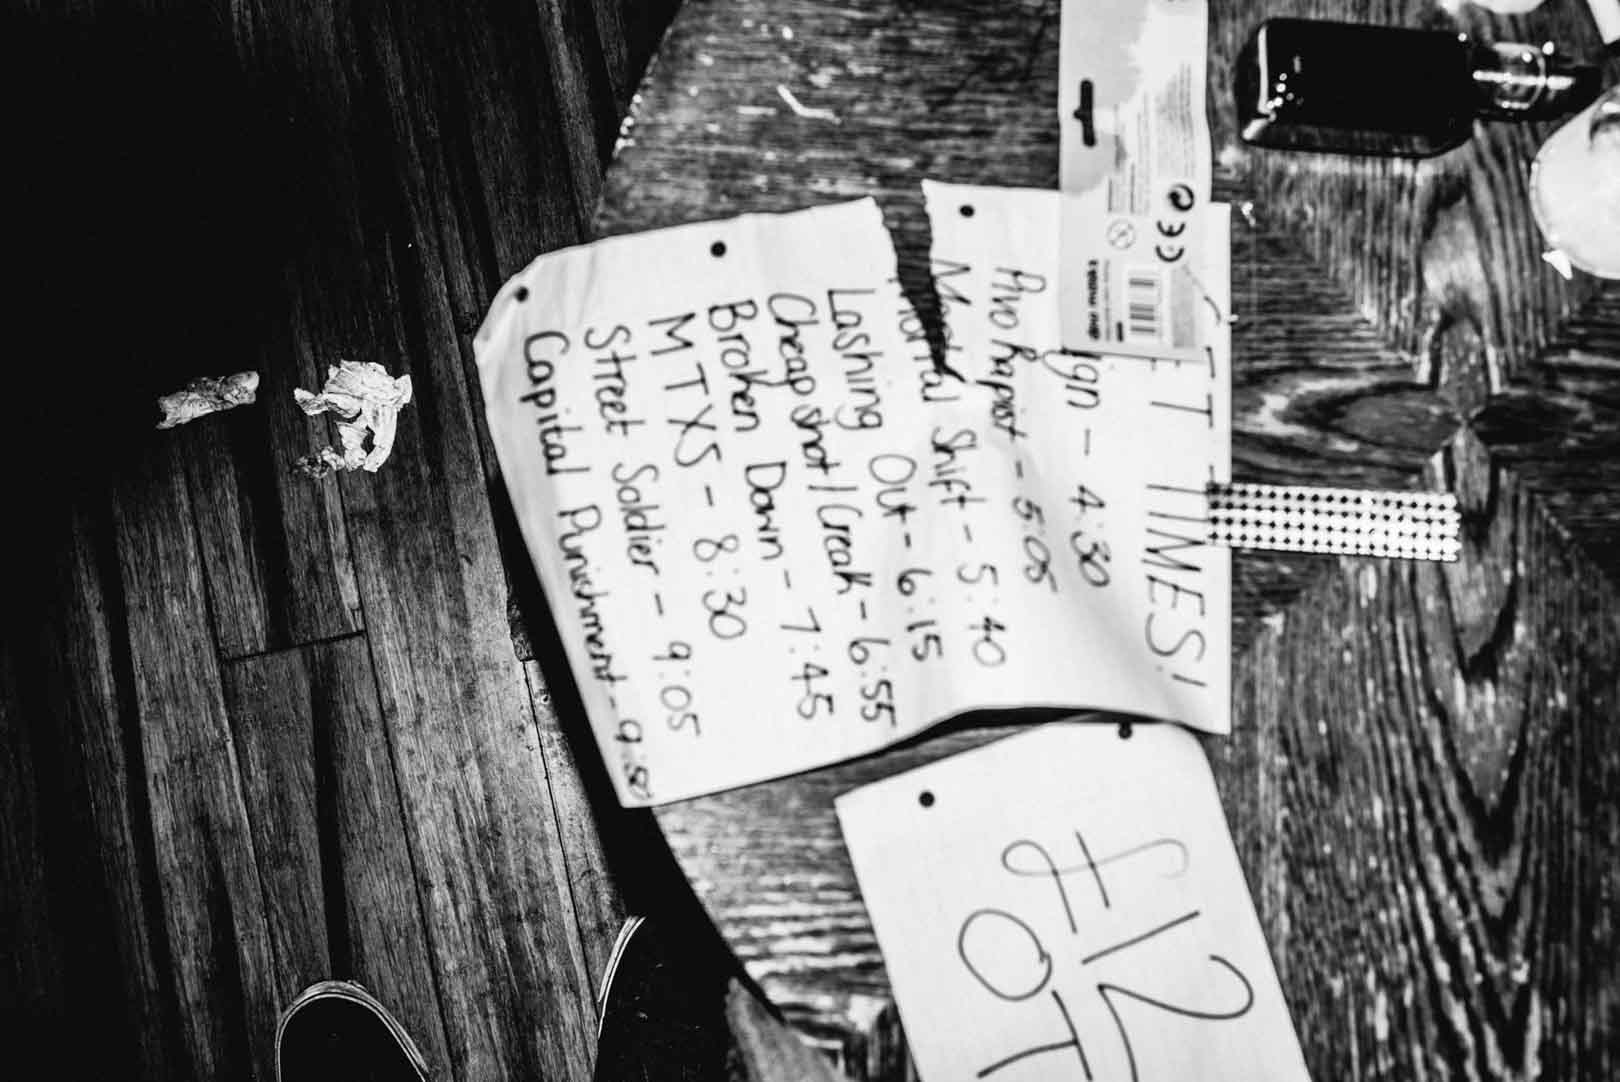 ET TIMES!
ign - 4:30
Avo Papist - 5:05
Mortal Shift - 5:40
Lashing Out - 6:15
Cheap shot / Creak - 6:55
Broken Down - 7:45
MTXS - 8:30
Street Soldier - 9:05
Capital Punishment - 9:50
£12
OT
CE